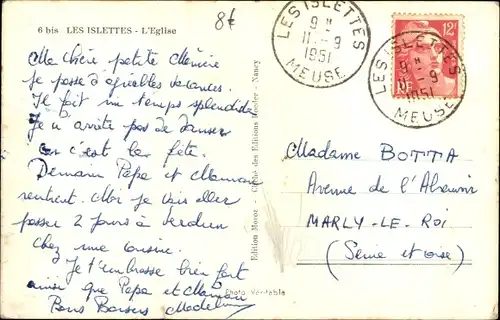 6 bis LES ISLETTES - L'Eglise
8€
LES ISLETTES
9 H
11 - 9
1951
MEUSE
12F
LES ISLETTES
9 H
11 - 9
1951
MEUSE
Ma chère petite Mémère
Je passe d'agréables vacances.
Il fait un temps splendide
Je n'arrête pas de danser
car c'est la fête.
Demain Papa et Maman
rentrent. Moi je vais aller
passer 2 jours à Verdun
chez une cousine.
Je t'embrasse bien fort
ainsi que Pépé et Maman
Bons Baisers Madeleine
Edition Moroz - Cliché des Editions - Nancy
Photo Véritable
Madame BOTTA
Avenue de l'Abreuvoir
MARLY-LE-ROI
(Seine et oise)